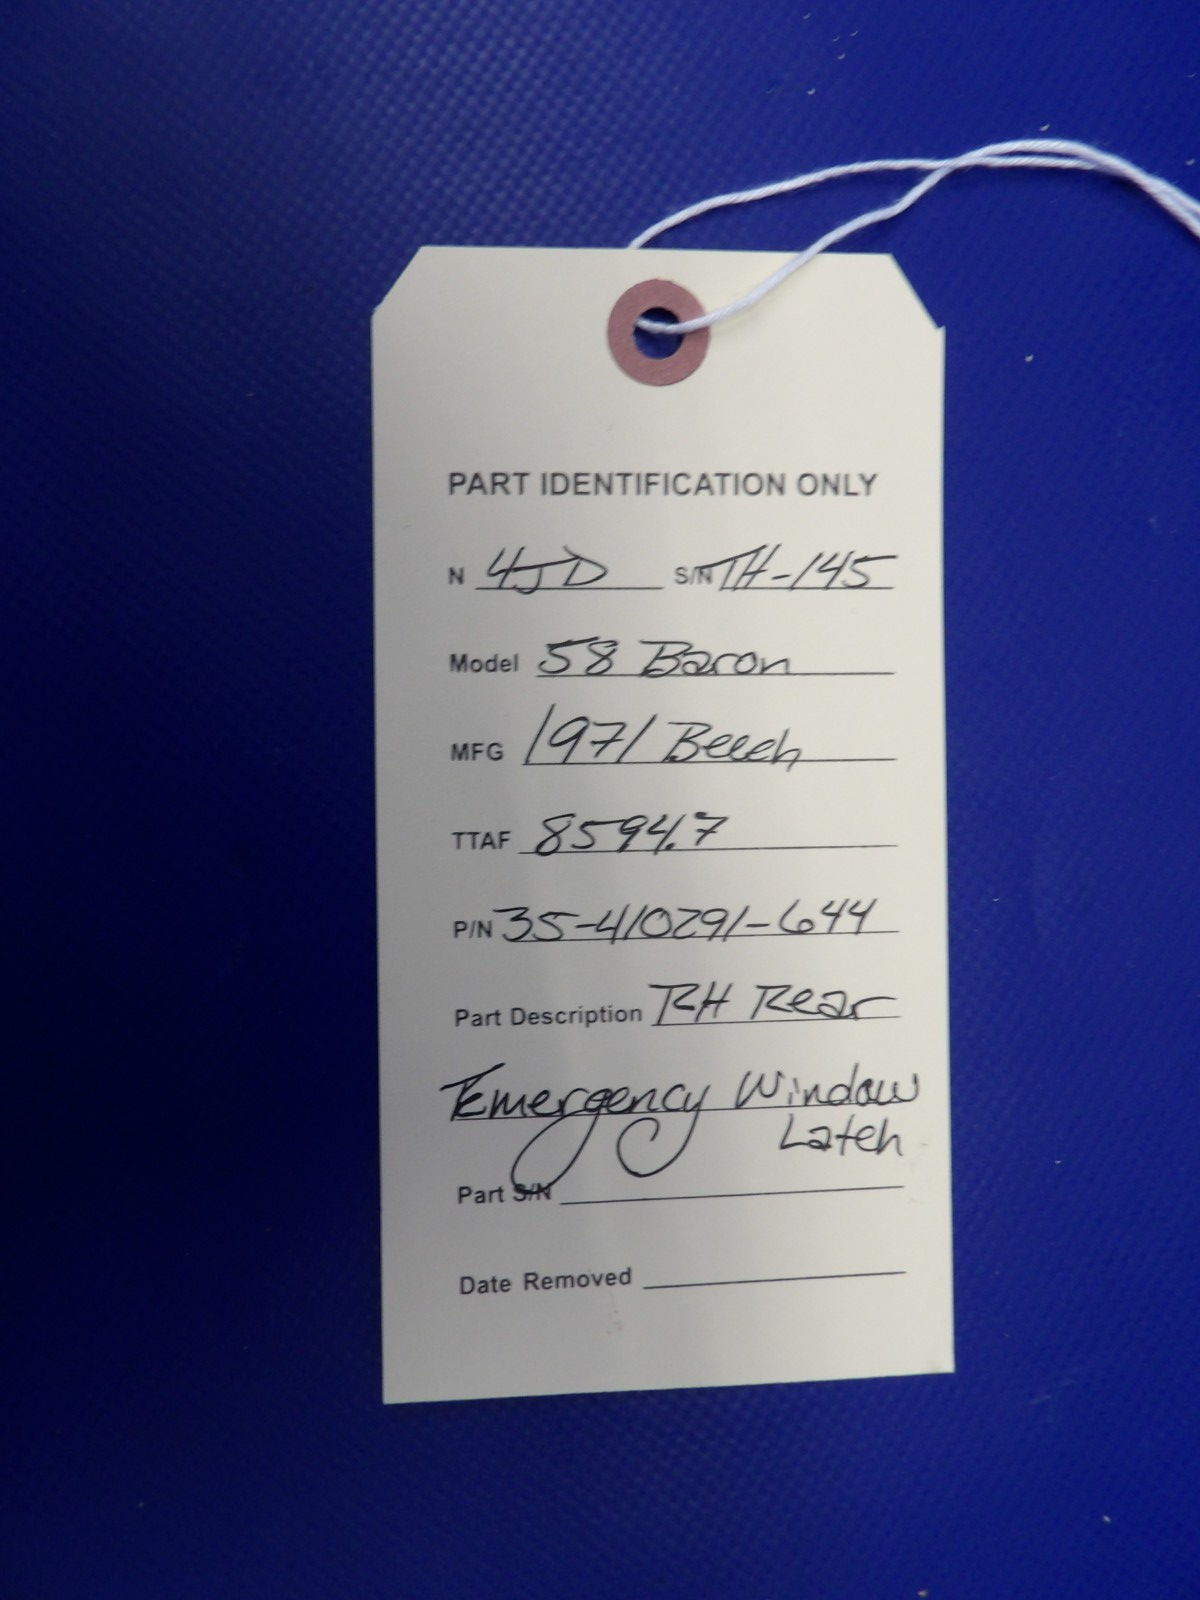 PART IDENTIFICATION ONLY
N 4JD S/N TH-145
Model 58 Baron
MFG 1971 Beech
TTAF 8594.7
P/N 35-410291-644
Part Description RH Rear
Emergency Window
Latch
Part S/N
Date Removed